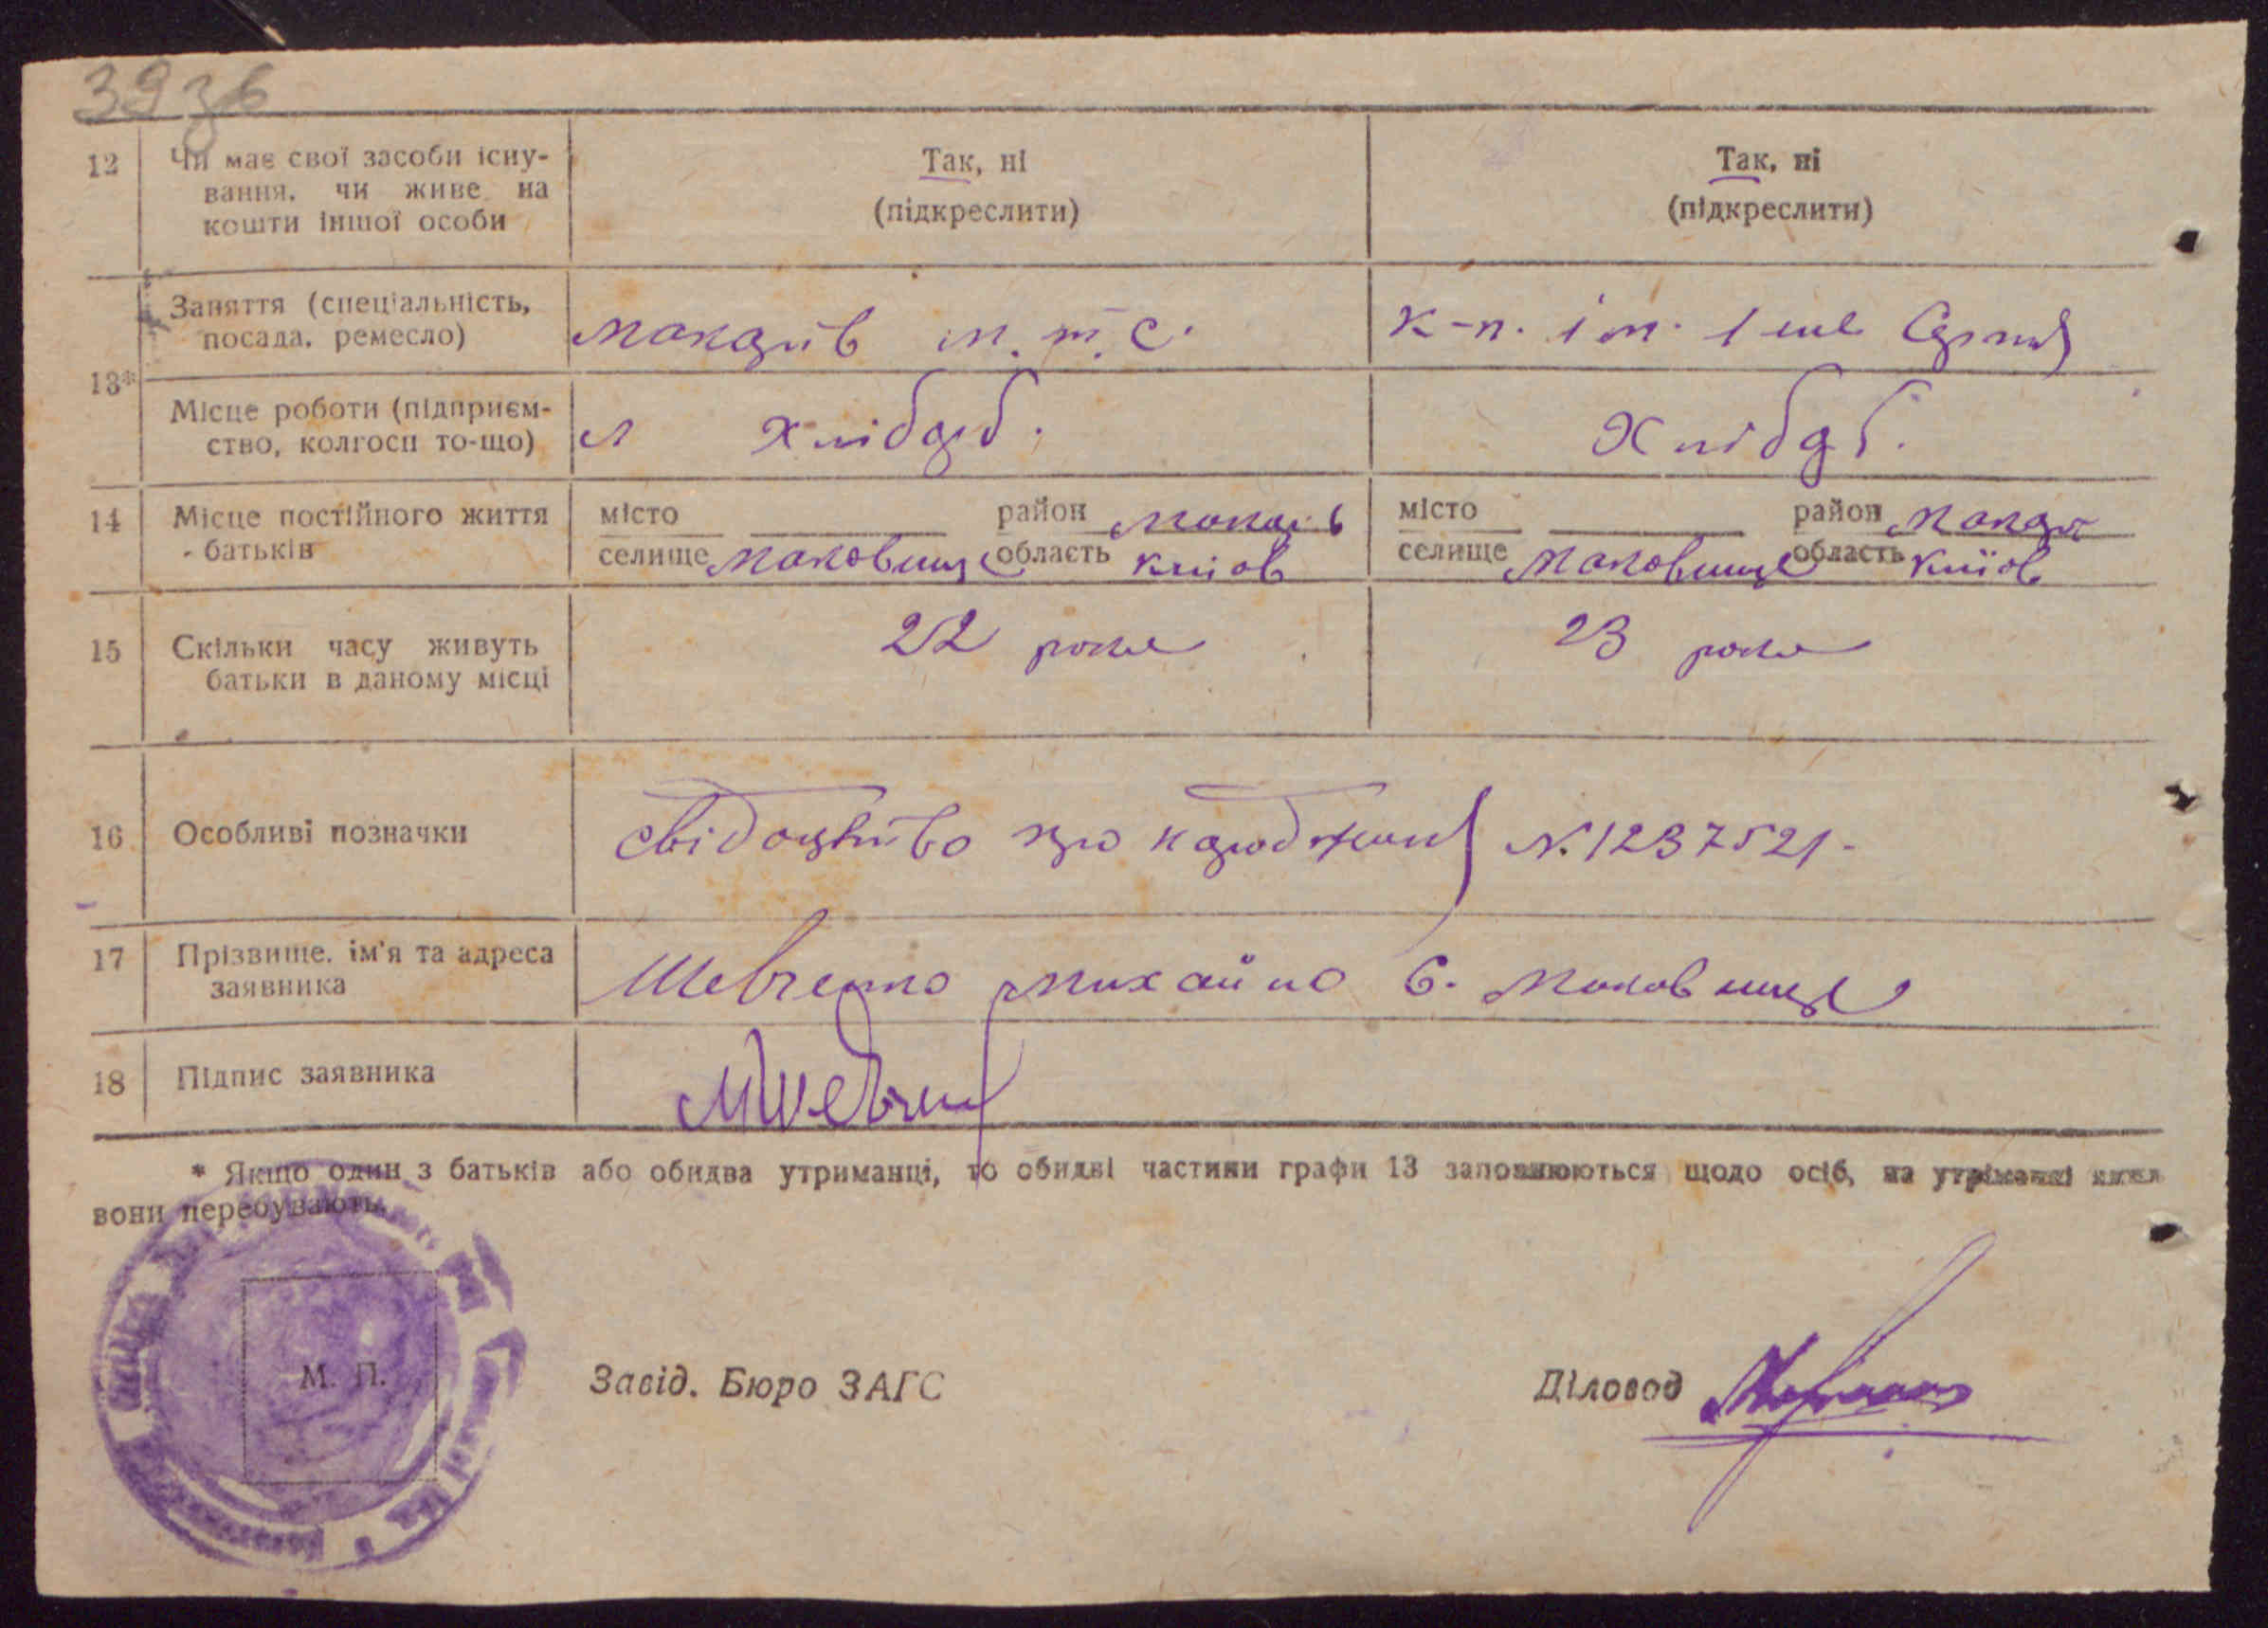 39зв
12 Чи має свої засоби існу-
вання, чи живе на
кошти іншої особи
Так, ні
(підкреслити)
Так, ні
(підкреслити)
13*
Заняття (спеціальність,
посада, ремесло)
Макарів м.т.с.
к-п. ім. 1ше Серпня
Місце роботи (підприєм-
ство, колгосп то-що)
хлібороб.
Хлібороб.
14 Місце постійного життя
батьків
місто район Макарів
селище Маковище область Київ
місто район Макарів
селище Маковище область Київ
15 Скільки часу живуть
батьки в даному місці
22 роки
23 роки
16 Особливі позначки
Свідоцтво про народження N. 1237521.
17 Прізвище, ім'я та адреса
заявника
Шевченко Михайло С. Маковище
18 Підпис заявника
МШевчен
* Якщо один з батьків або обидва утриманці, то обидві частини графи 13 заповнюються щодо осіб, на утриманні яких
вони перебувають.
М. П.
Завід. Бюро ЗАГС
Діловод